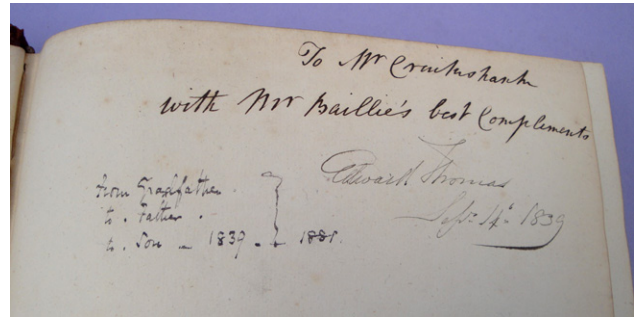 To Mr Cruikshank
with Mr Baillie's best Compliments
Edward Thomas
Sept. 14th 1839
from Grandfather
to. Father.
to. Son - 1839 - to 1881.